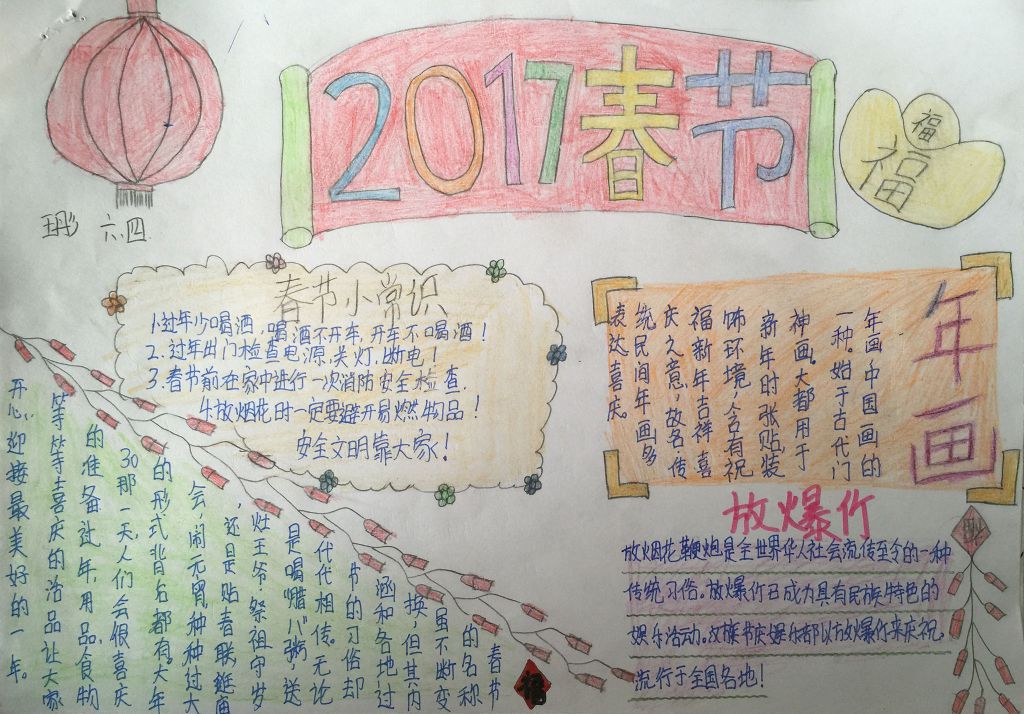 2017春节
福
福
王彤 六.四
春节小常识
1.过年少喝酒,喝酒不开车,开车不喝酒!
2.过年出门检查电源.关灯.断电!
3.春节前在家中进行一次消防安全检查.
4放烟花时一定要避开易燃物品!
安全文明靠大家!
年画
年画中国画的
一种。始于古代门
神画。大都用于
新年时张贴,装
饰环境,含有祝
福新年吉祥喜
庆之意,故名.传
统民间年画多
表达喜庆。
放爆竹
放烟花鞭炮是全世界华人社会流传至今的一种
传统习俗。放爆竹已成为具有民族特色的
娱乐活动。族节庆娱乐都以放爆竹来庆祝.
流行于全国各地!
春节
的名称
虽不断变
换,但其内
涵和各地过
节的习俗却
代代相传。无论
是喝腊八粥 送
灶王爷,祭祖守岁
,还是贴春联逛庙
会,闹元宵,种种过大
的形式背后都有。大年
30那一天,人们会很喜庆
的准备过年,用品,食物
等等喜庆的活品让大家
开心,迎接最美好的一年。
福